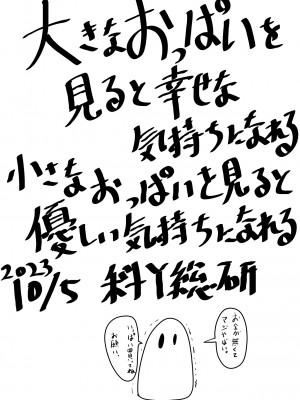 大きなおっぱいを
見ると幸せな
気持ちになれる
小さなおっぱいを見ると
優しい気持ちになれる
2023
10/5 料Y総研
お金が無くて
マジやばい。
いっぱい買ってね
お願い。